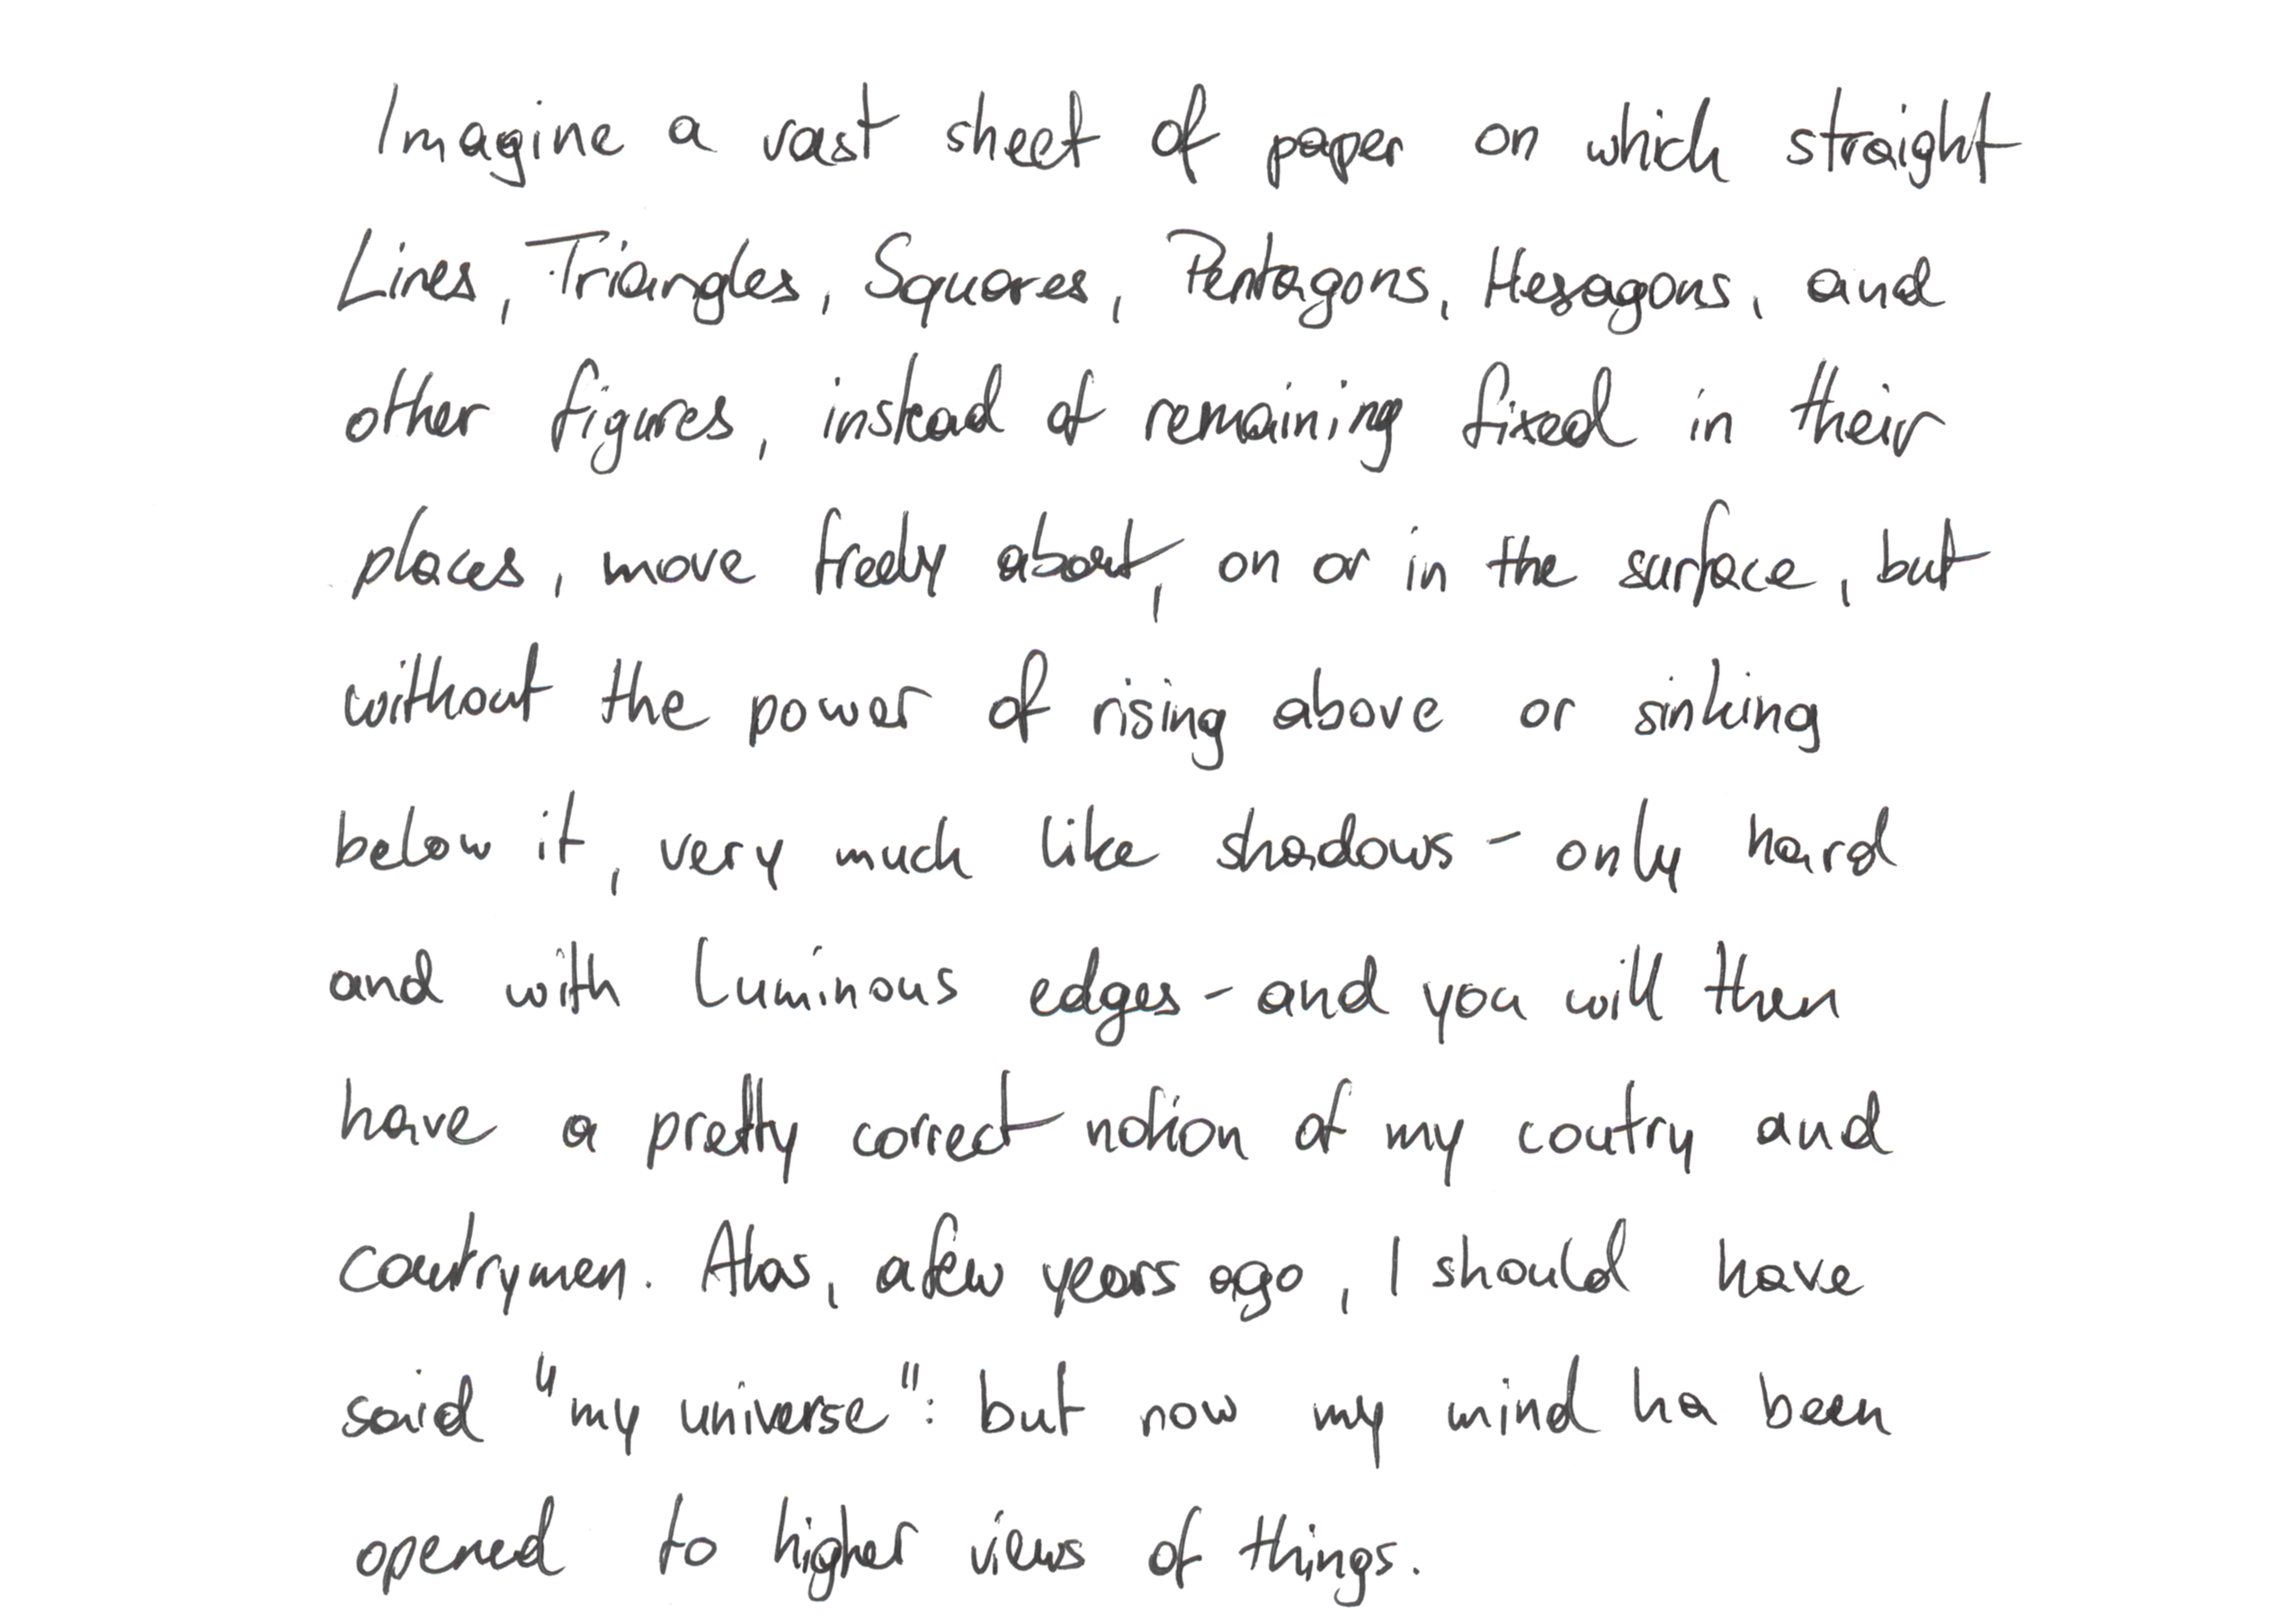 Imagine a vast sheet of paper on which straight
Lines, Triangles, Squares, Pentagons, Hexagons, and
other figures, instead of remaining fixed in their
places, move freely about, on or in the surface, but
without the power of rising above or sinking
below it, very much like shadows - only hard
and with luminous edges - and you will then
have a pretty correct notion of my coutry and
coutrymen. Alas, a few years ago, I should have
said "my universe": but now my mind ha been
opened to higher views of things.